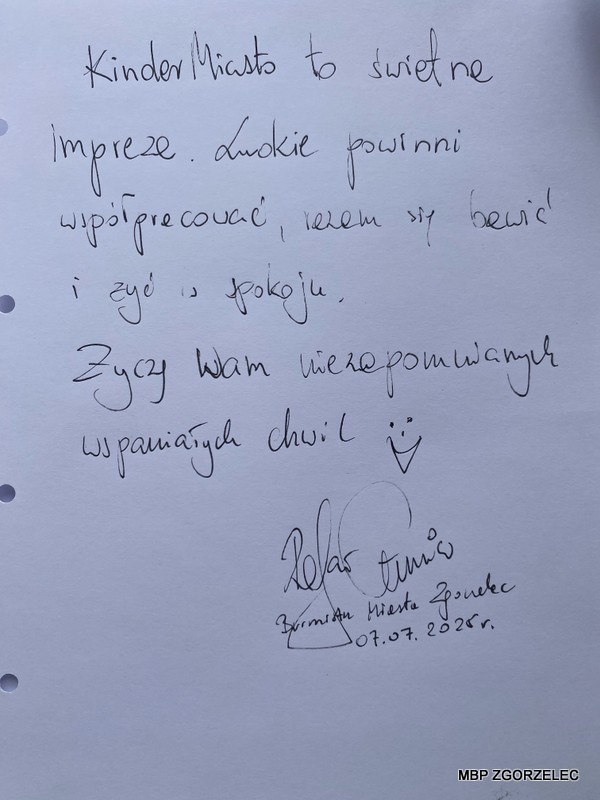 KinderMiasto to świetna
impreza. Ludzie powinni
współpracować, razem się bawić
i żyć w spokoju.
Życzę Wam niezapomnianych
wspaniałych chwil
Rafał
Burmistrz Miasta Zgorzelec
07.07.2025 r.
MBP ZGORZELEC